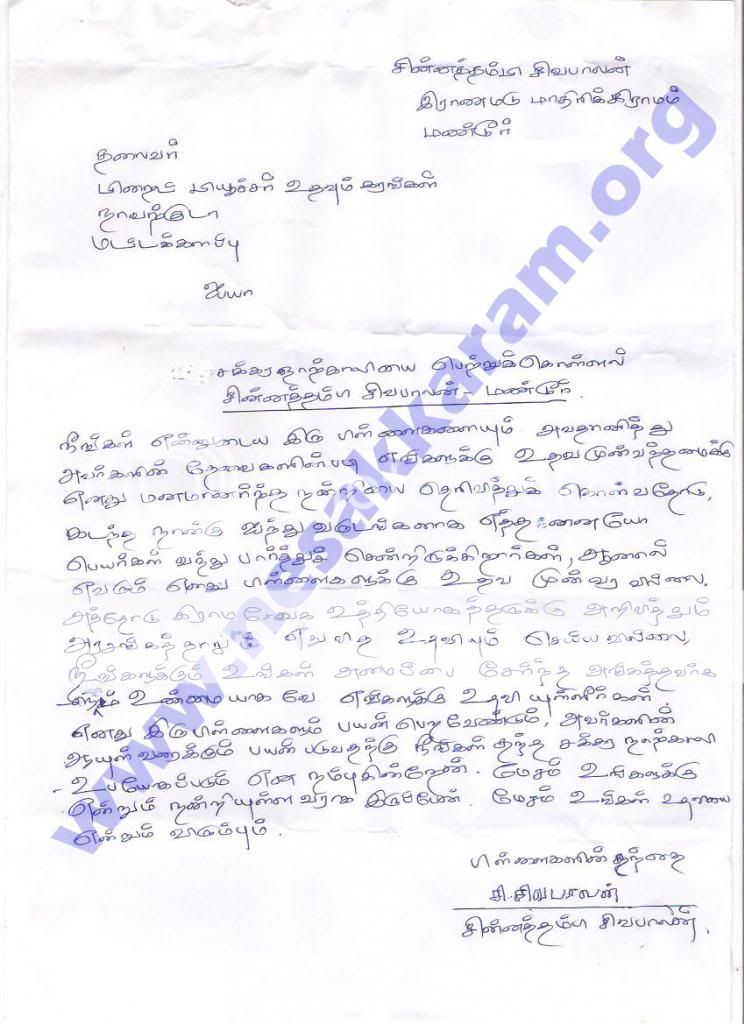 சின்னத்தம்பி சிவபாலன்
இராணமடு மாதிரிக்கிராமம்
மண்டூர்
தலைவர்
பிறைட் பியூச்சர் உதவும் கரங்கள்
நாவற்குடா
மட்டக்களப்பு
ஐயா
சக்கர நாற்காலியை பெற்றுக்கொள்ளல்
சின்னத்தம்பி சிவபாலன் - மண்டூர்.
நீங்கள் என்னுடைய இரு பிள்ளைகளையும் அவதானித்து
அவர்களின் தேவைகளின்படி எங்களுக்கு உதவ முன்வந்தமைக்கு
எனது மனமார்ந்த நன்றியை தெரிவித்துக் கொள்வதோடு,
கடந்த நான்கு ஐந்து வருடங்களாக எத்தனையோ
பெயர்கள் வந்து பார்த்துச் சென்றிருக்கிறார்கள், ஆனால்
எவரும் எனது பிள்ளைகளுக்கு உதவ முன்வரவில்லை.
அத்தோடு கிராமசேவக உத்தியோகத்தருக்கு அறிவித்தும்
அரசாங்கத்தாலும் எதுவித உதவியும் செய்யவில்லை,
நீங்களும் உங்கள் அமைப்பை சேர்ந்த அங்கத்தவர்க
ளும் உண்மையாகவே எங்களுக்கு உதவியுள்ளீர்கள்
எனது இரு பிள்ளைகளும் பயன் பெறவேண்டும், அவர்களின்
ஆயுள் வரைக்கும் பயன் படுவதற்கு நீங்கள் தந்த சக்கர நாற்காலி
உபயோகப்படும் என நம்புகின்றேன். மேசம் உங்களுக்கு
என்றும் நன்றியுள்ளவராக இருப்பேன். மேசம் உங்கள் உதவியை
என்றும் விரும்பும்.
பிள்ளைகளின் தந்தை
சி.சிவபாலன்
சின்னத்தம்பி சிவபாலன்.
www.mesakkaram.org